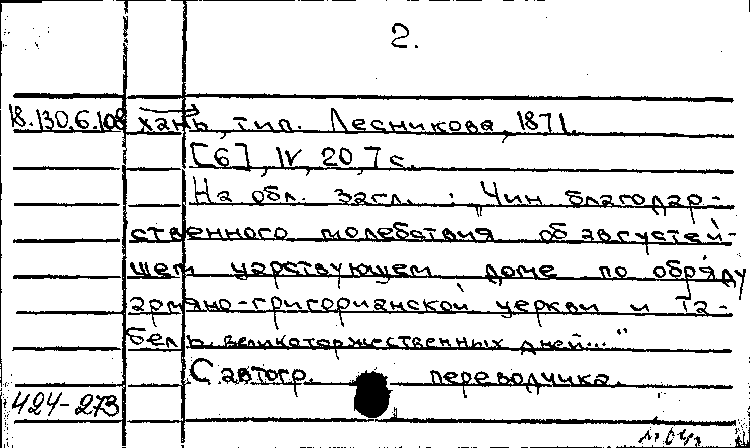 2.
18.130.6.108 хань, тип. Лесникова, 1871.
[6], IV, 20, 7 с.
На обл. загл.: „Чин благодар-
ственного молебствия об августей-
шем царствующем доме по обряду
армяно-григорианской церкви и та-
бель великоторжественных дней..."
С автогр. переводчика.
424-273